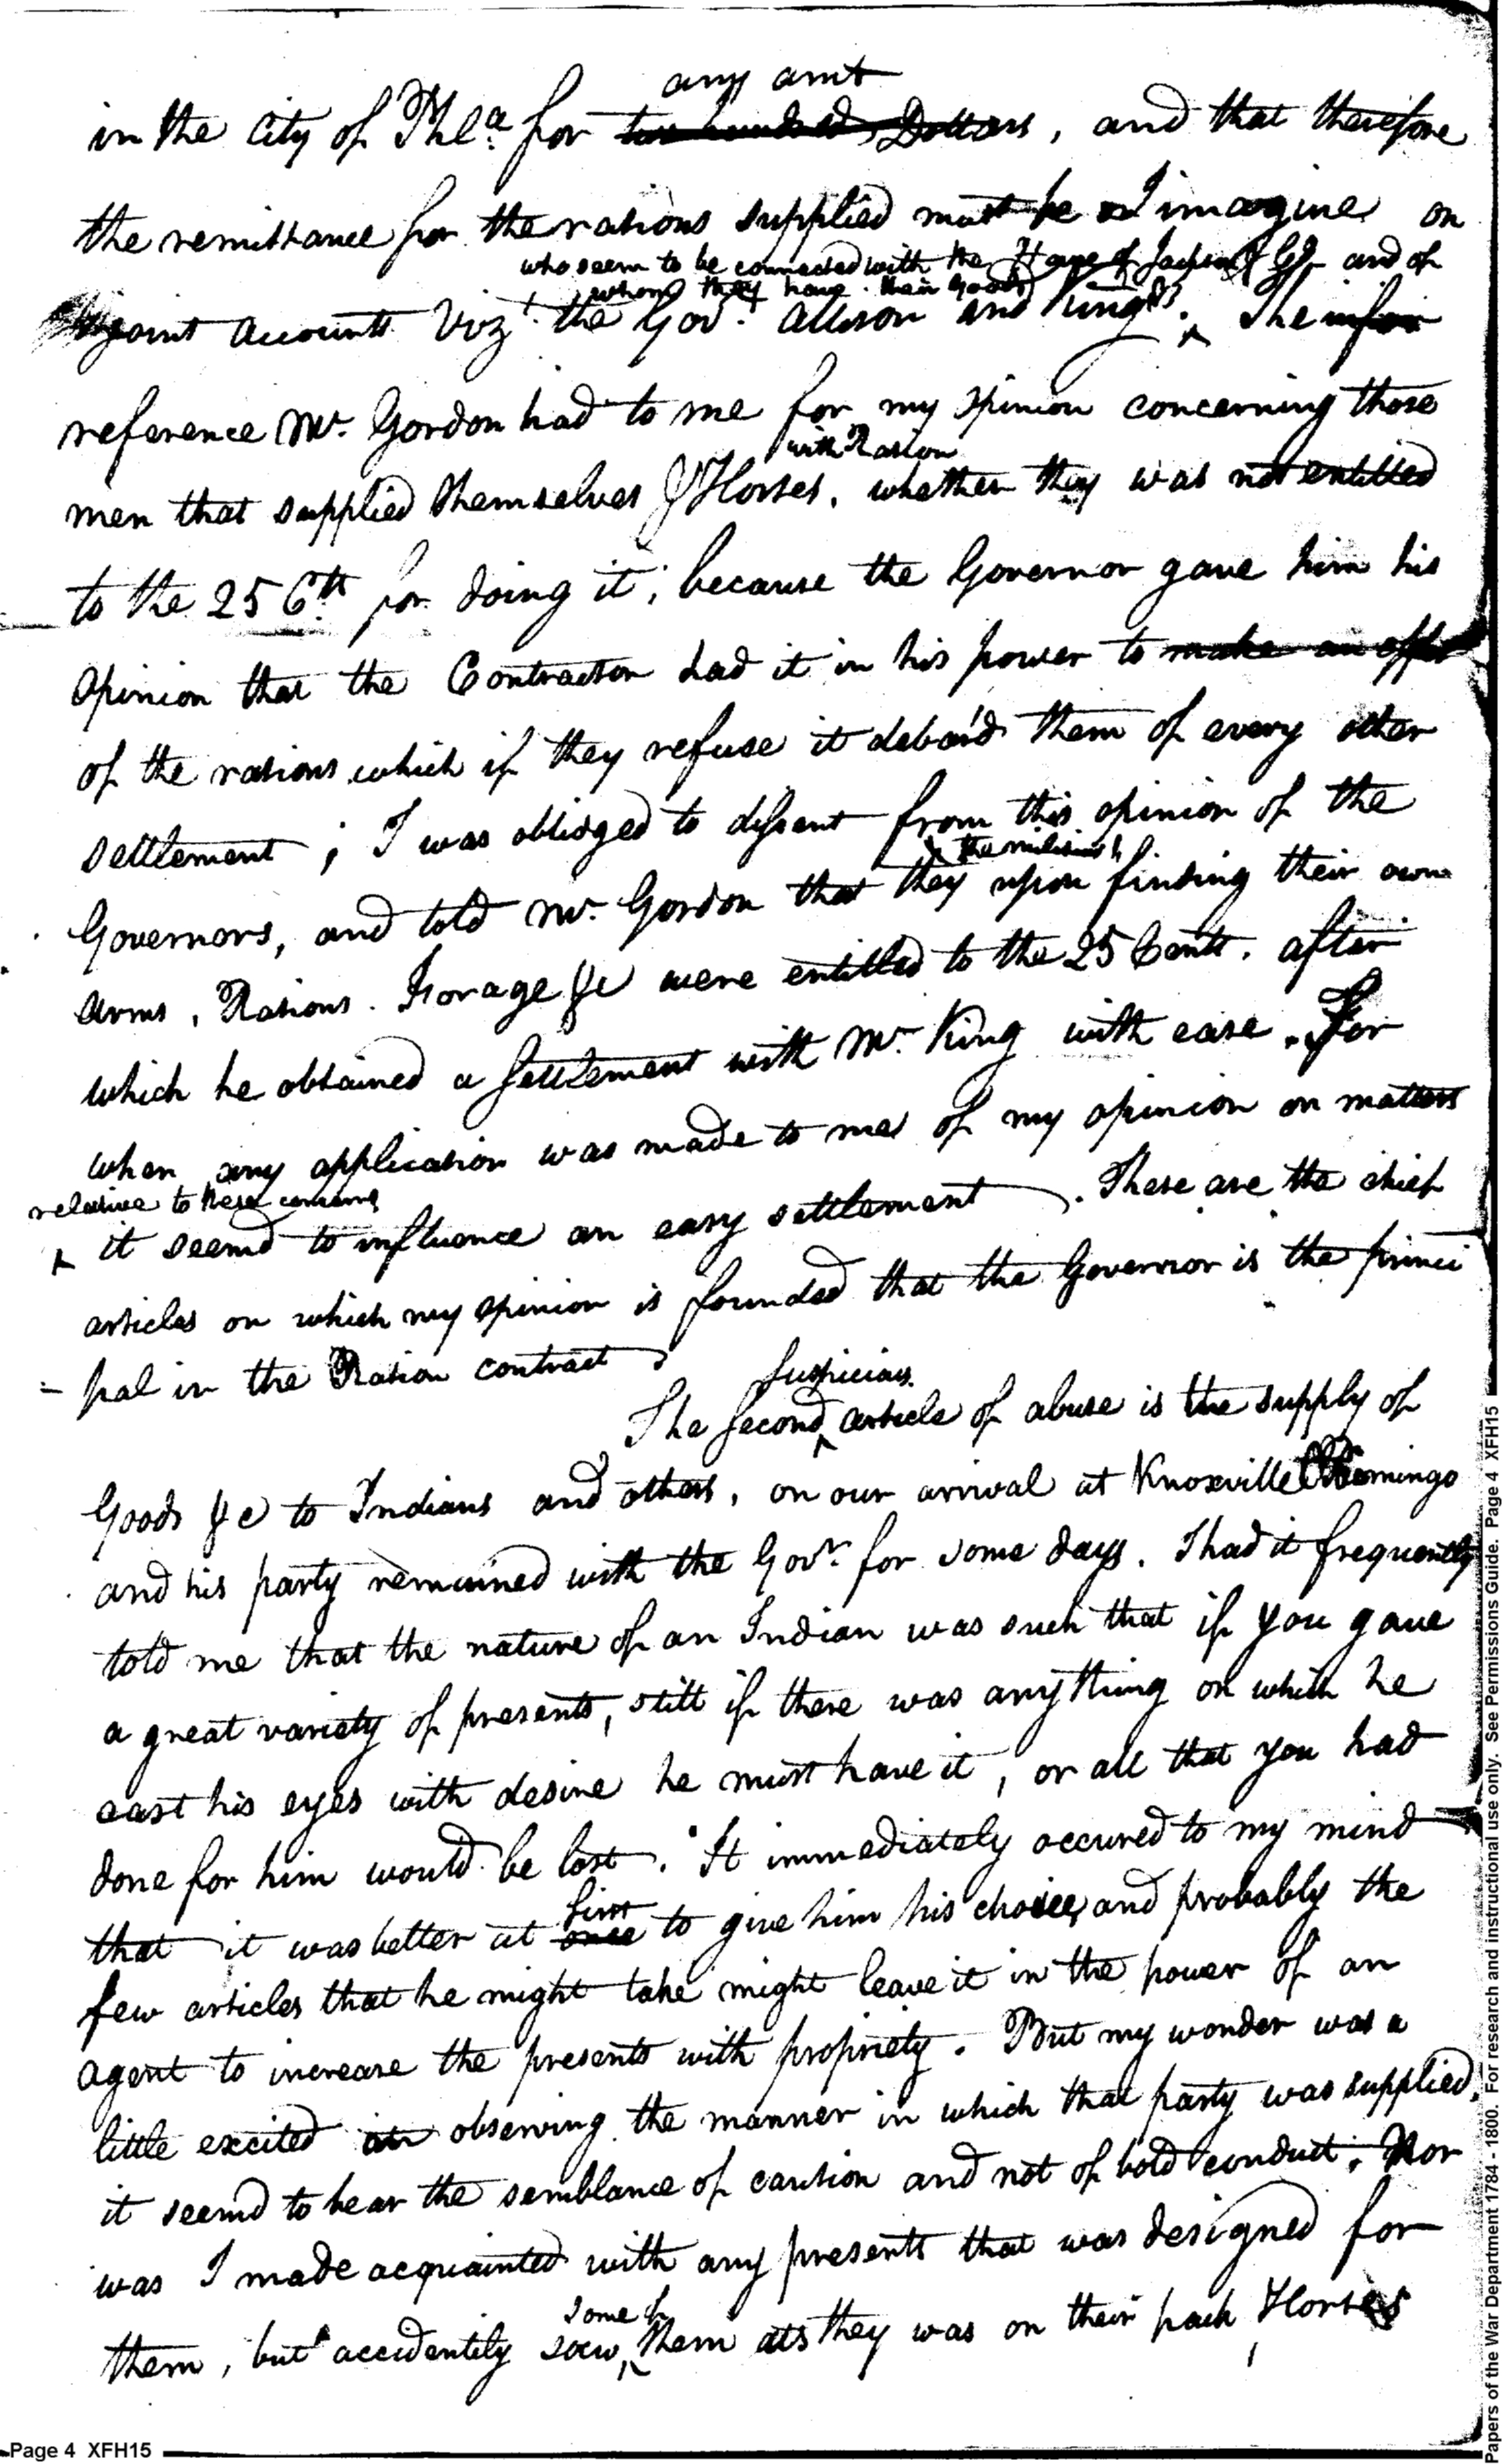 any amt
in the City of Phl.ª for two hundred Dollars, and that therefore
the remittance for the rations supplied must be as I imagine on
who seem to be connected with the House of Jackson & Co. and of
whom they have their goods
joint accounts Viz.t the Gov.r Allison and King. The infor
reference Mr. Gordon had to me for my opinion concerning those
with Ration
men that supplied themselves & Horses, whether they was not entitled
to the 25 Cts for doing it; because the Governor gave him his
Opinion that the Contractor had it in his power to make an offer
of the rations which if they refuse it debar'd them of every other
settlement; I was obliged to dissent from this opinion of the
the militia
Governors, and told Mr. Gordon that they upon finding their own
Arms, Rations. Forage &c were entitled to the 25 Cents. after
which he obtained a settlement with Mr. King with ease. For
when any application was made to me of my opinion on matters
relative to these concerns
it seemd to influence an easy settlement. These are the chief
articles on which my opinion is founded that the Governor is the princi
= pal in the Ration contract
Suspicious
The Second article of abuse is the supply of
Goods &c to Indians and others, on our arrival at Knoxville Piomingo
and his party remained with the Gov.r for some days. I had it frequently
told me that the nature of an Indian was such that if you gave
a great variety of presents, still if there was any thing on which he
cast his eyes with desire he must have it, or all that you had
done for him would be lost. It immediately occured to my mind
first
that it was better at once to give him his choice, and probably the
few articles that he might take might leave it in the power of an
agent to increase the presents with propriety. But my wonder was a
little excited at observing the manner in which that party was supplied,
it seemd to bear the semblance of caution and not of bold conduct, Nor
was I made acquainted with any presents that was designed for
some of
them, but accidentily saw them as they was on their pack Horses
Page 4 XFH15
Papers of the War Department 1784 - 1800. For research and instructional use only. See Permissions Guide. Page 4 XFH15